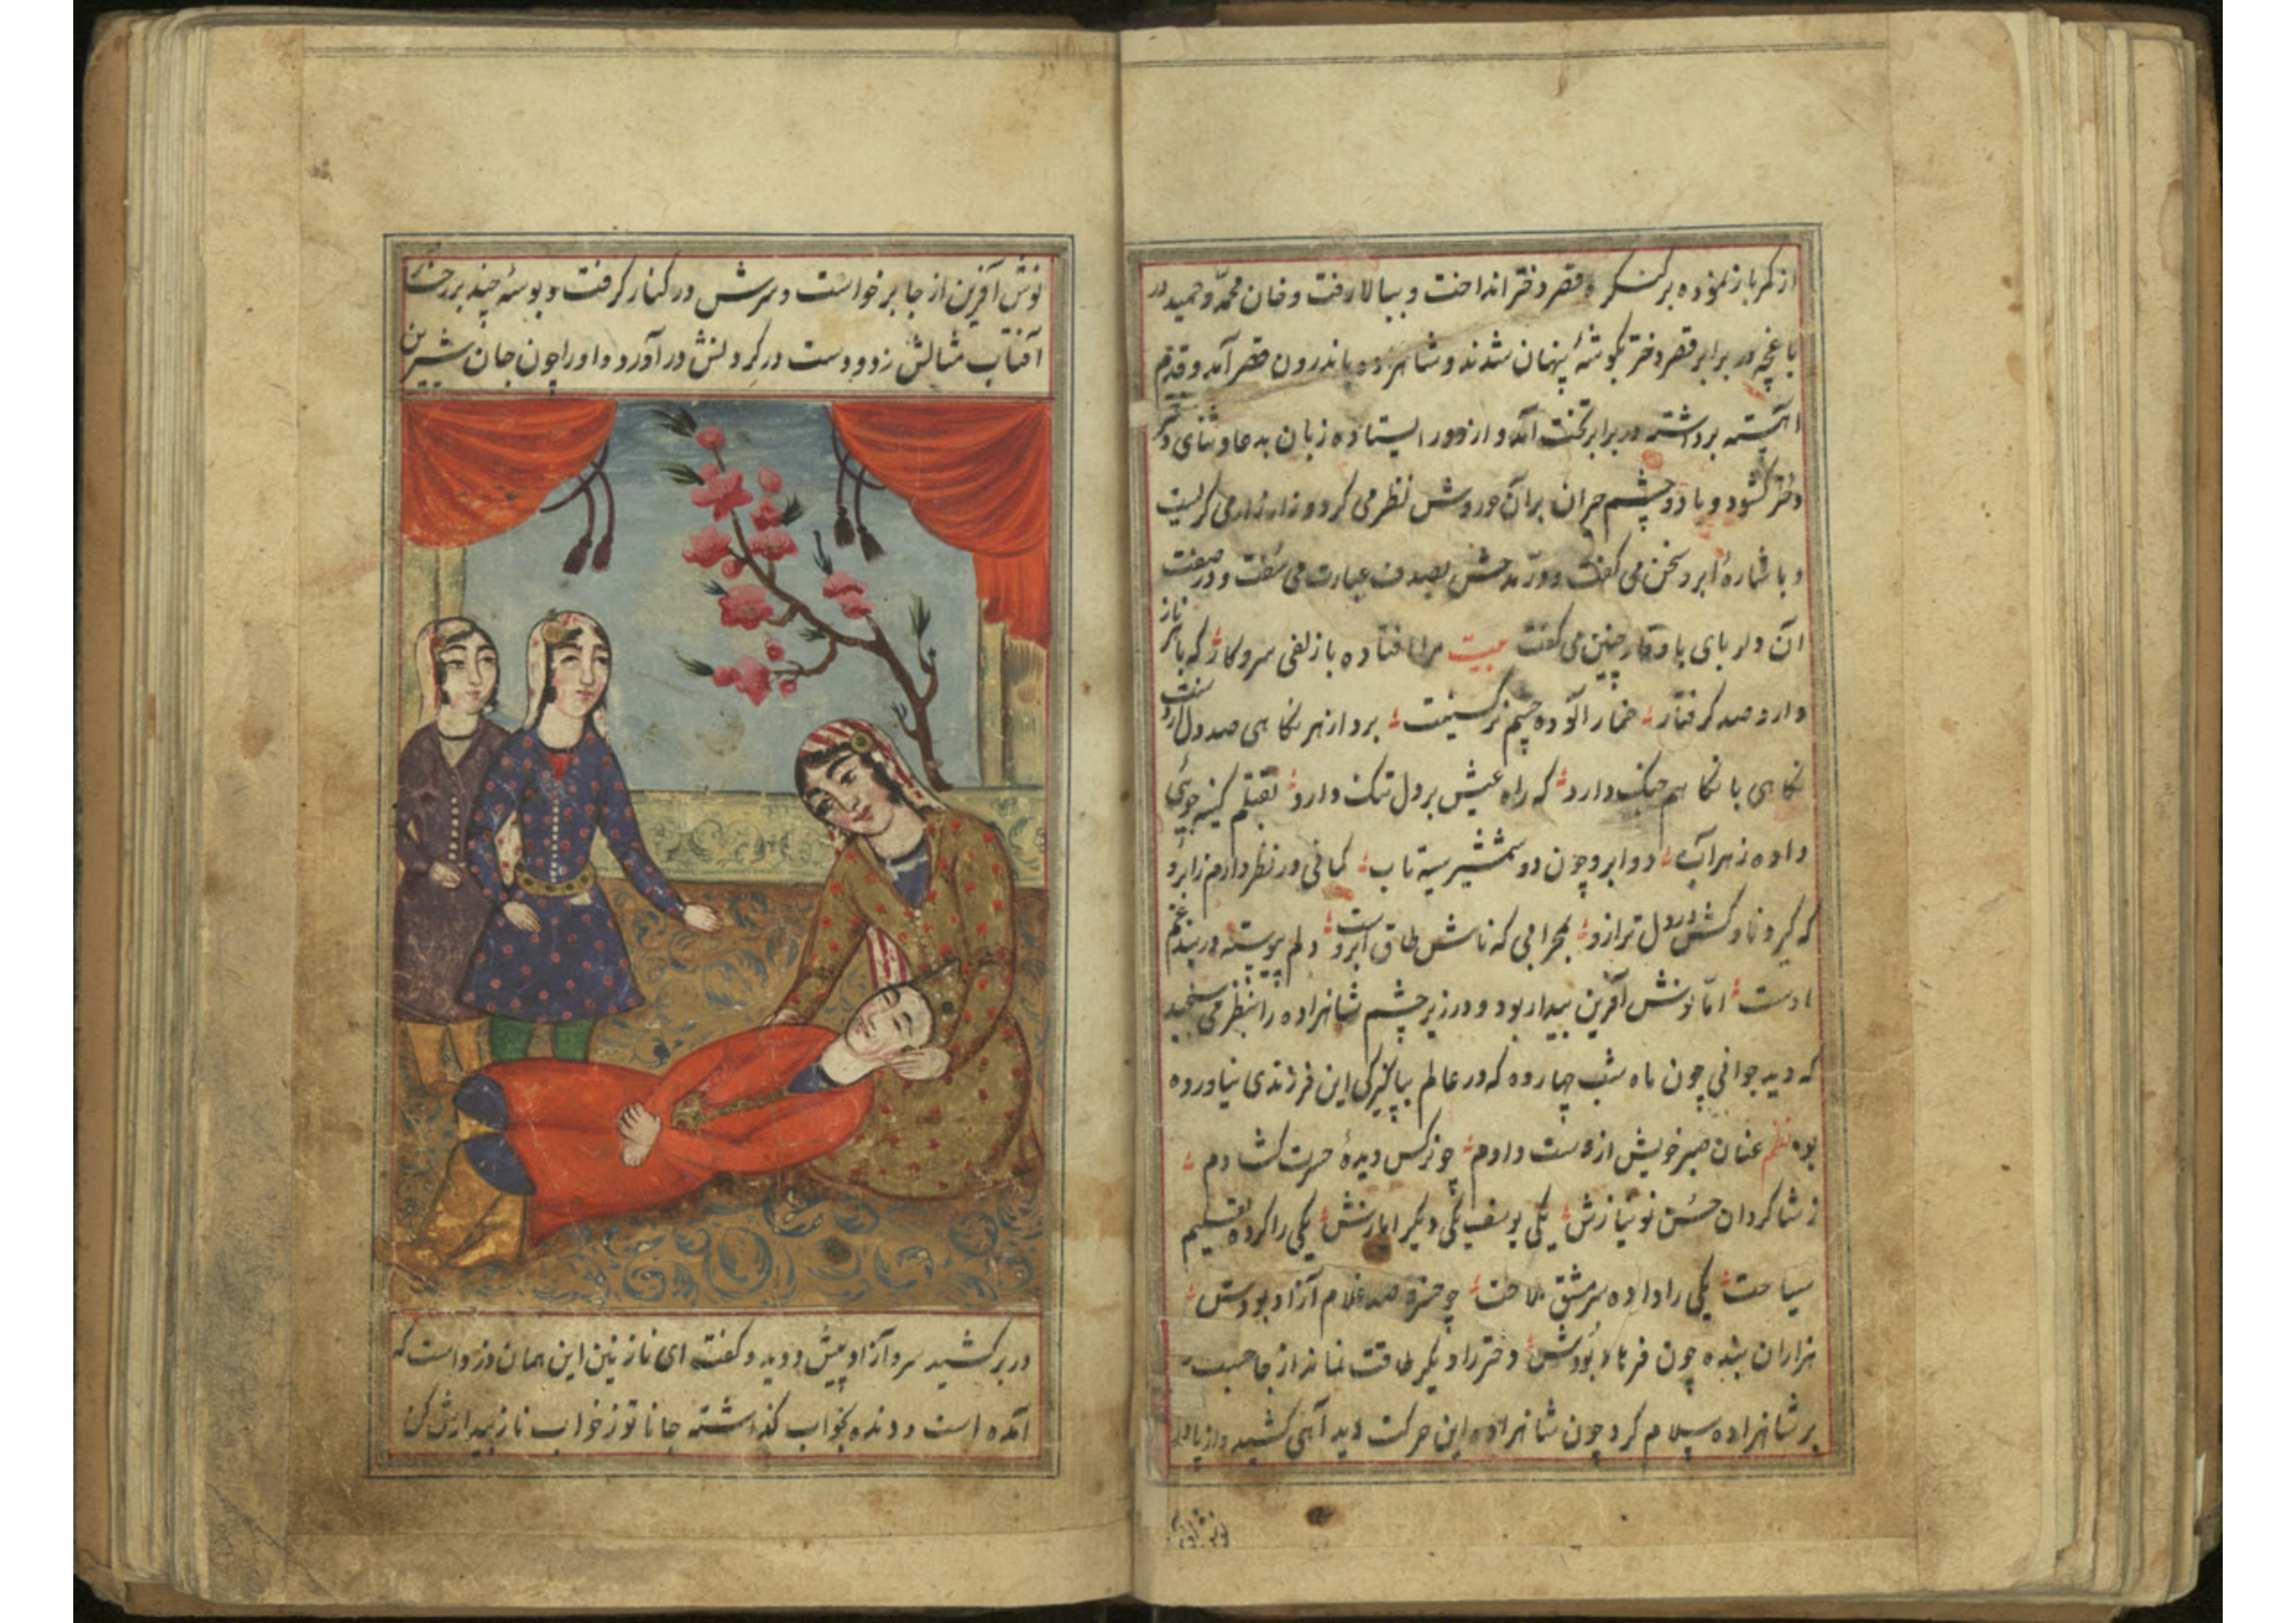 از کمر باز نموده بر کنگره قصر دختر انداخت و ببالا رفت و خان محمد و حمید در
باغچه در برابر قصر دختر بگوشهٔ پنهان شدند و شاهزاده باندرون قصر آمد و قدم
آهسته برداشته در برابر تخت آمد و از دور ایستاده زبان بدعا و ثنای
دختر گشود و با دو چشم حیران بر آن حوروش نظر می کرد و زار زار می کریست
و باشارهٔ ابرو سخن می گفت و در مدحش بصدف عبارت می سفت و در صفت
آن دلربای با وقار چنین می گفت بیت مرا افتاده با زلفی سر و کار که با هر تار
دارد صد گرفتار خمار آلوده چشم نرگسینت برد از هر نگاهی صد دل از دست
نگاهی با نگاهم جنگ دارد که راه عیش بر دل تنگ دارد بقتلم کینه جوئی
داده زهر آب دو ابرو چون دو شمشیر سیه تاب کمانی در نظر دارم ز ابرو
که گیرد ناوکش در دل ترازو بمحرابی که نامش طاق ابروست دلم پیوسته در بند غم
اوست امّا نوش آفرین بیدار بود و در زیر چشم شاهزاده را بنظر می سنجید
که دید جوانی چون ماه شب چهارده که در عالم بپاکیزگی این فرزندی نیاورده
بود نظم عنان صبر خویش از دست دادم چو نرگس دیدهٔ حسرت گشادم
ز شاگردان حسن نو نیازش یکی یوسف یکی دیگر ایازش یکی را کرده تعلیم
سیاحت یکی را داده سرمشق ملاحت چو حمزه صد غلام آزاد بودش
هزاران بنده چون فرهاد بودش دختر را دیگر طاقت نماند از جا جست
بر شاهزاده سلام کرد چون شاهزاده این حرکت دید آهی کشید و از پا
نوش آفرین
نوش آفرین از جا برخواست و سرش در کنار گرفت و بوسهٔ چند بر رخسار
آفتاب مثالش زد و دست در گردنش در آورد و او را چون جان شیرین
در بر کشید سرو آزاد پیش دوید و گفت ای نازنین این همان دزد است که
آمده است و دنده بخواب گذاشته جانا تو ز خواب ناز بیدارش کن